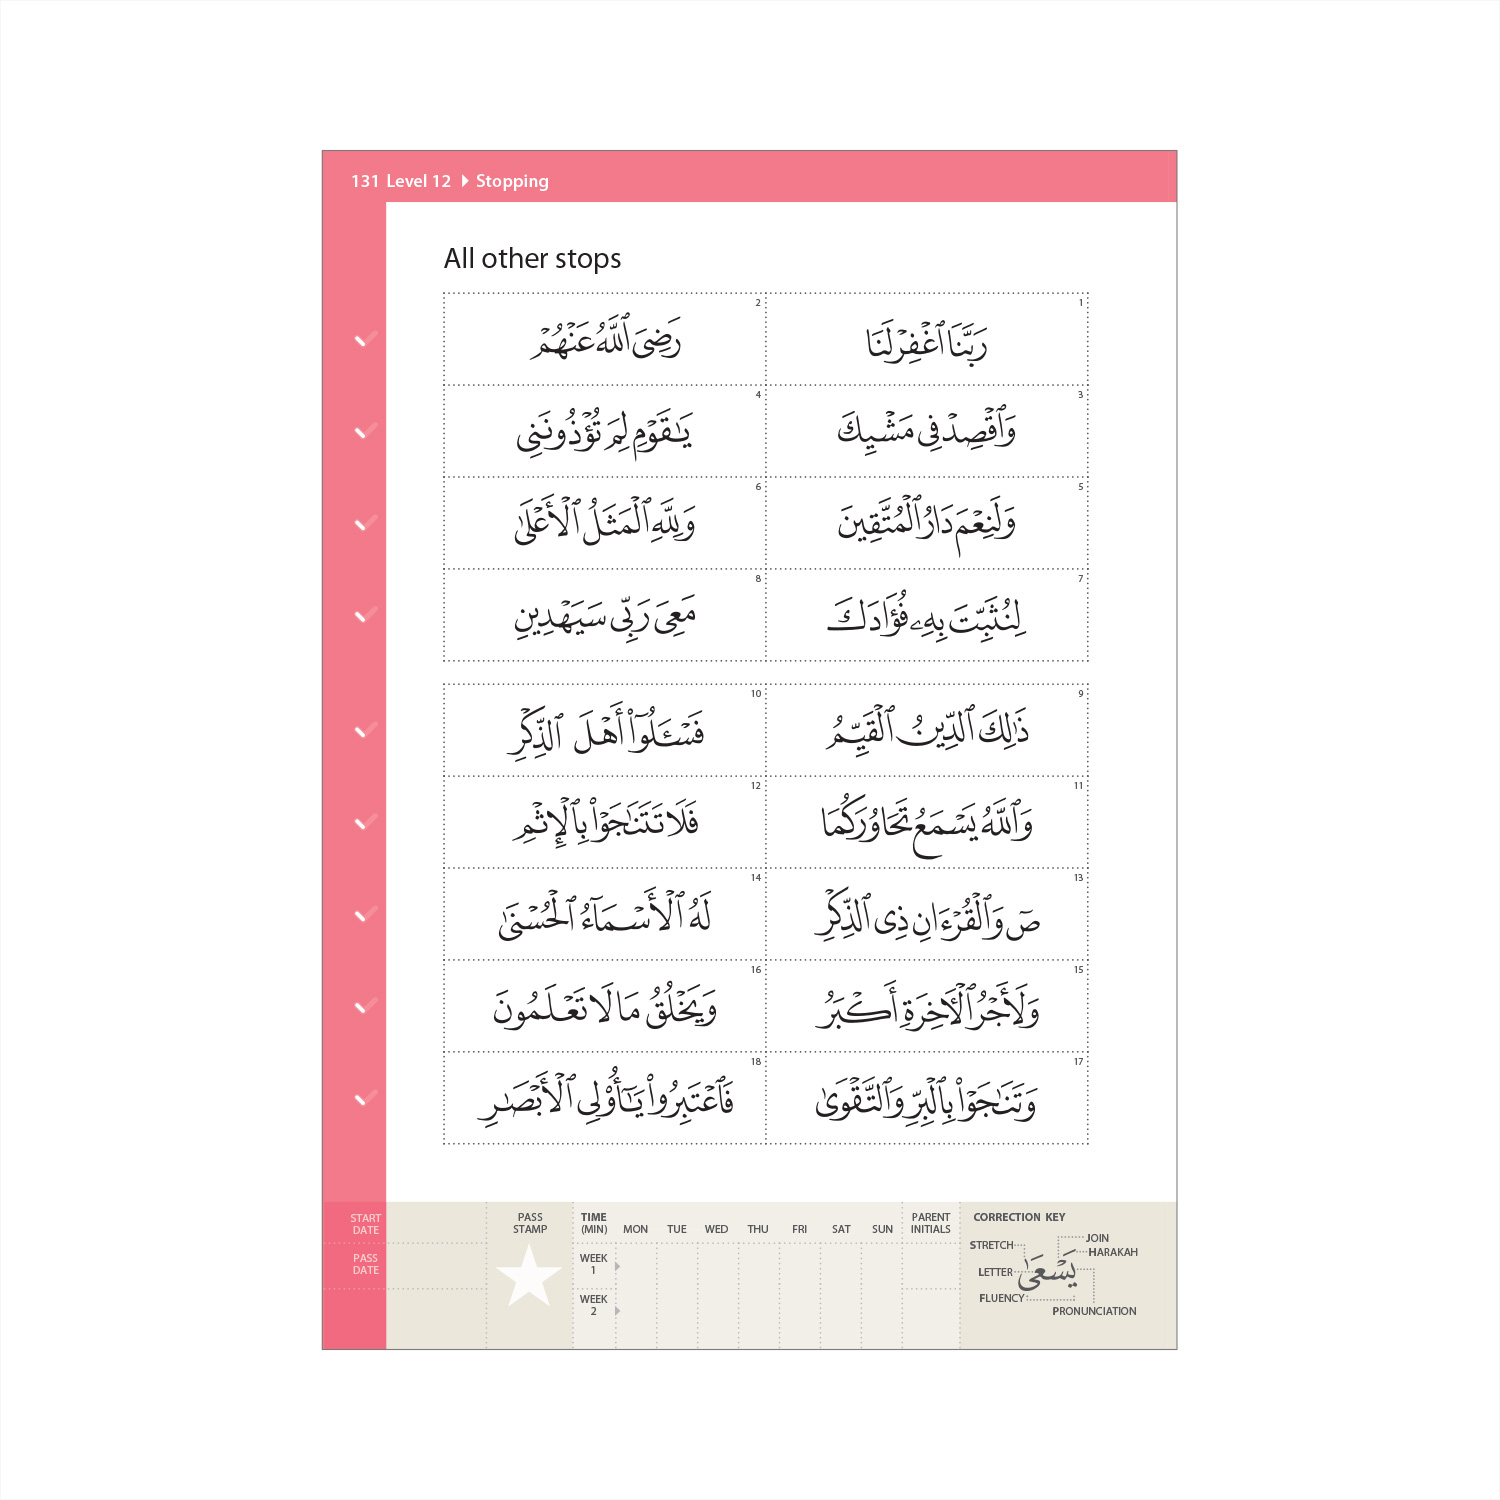 131 Level 12 Stopping
All other stops
1 رَبَّنَا ٱغْفِرْ لَنَا
2 رَضِىَ ٱللَّهُ عَنْهُمْ
3 وَٱقْصِدْ فِى مَشْيِكَ
4 يَـٰقَوْمِ لِمَ تُؤْذُونَنِى
5 وَلَنِعْمَ دَارُ ٱلْمُتَّقِينَ
6 وَلِلَّهِ ٱلْمَثَلُ ٱلْأَعْلَىٰ
7 لِنُثَبِّتَ بِهِۦ فُؤَادَكَ
8 مَعِىَ رَبِّى سَيَهْدِينِ
9 ذَٰلِكَ ٱلدِّينُ ٱلْقَيِّمُ
10 فَسْـَٔلُوٓا۟ أَهْلَ ٱلذِّكْرِ
11 وَٱللَّهُ يَسْمَعُ تَحَاوُرَكُمَا
12 فَلَا تَتَنَـٰجَوْا۟ بِٱلْإِثْمِ
13 صٓ وَٱلْقُرْءَانِ ذِى ٱلذِّكْرِ
14 لَهُ ٱلْأَسْمَآءُ ٱلْحُسْنَىٰ
15 وَلَأَجْرُ ٱلْـَٔاخِرَةِ أَكْبَرُ
16 وَيَخْلُقُ مَا لَا تَعْلَمُونَ
17 وَتَنَـٰجَوْا۟ بِٱلْبِرِّ وَٱلتَّقْوَىٰ
18 فَٱعْتَبِرُوا۟ يَـٰٓأُو۟لِى ٱلْأَبْصَـٰرِ
START DATE
PASS DATE
PASS STAMP
TIME (MIN) MON TUE WED THU FRI SAT SUN
WEEK 1
WEEK 2
PARENT INITIALS
CORRECTION KEY
JOIN
STRETCH
HARAKAH
LETTER
يَسْعَىٰ
FLUENCY
PRONUNCIATION